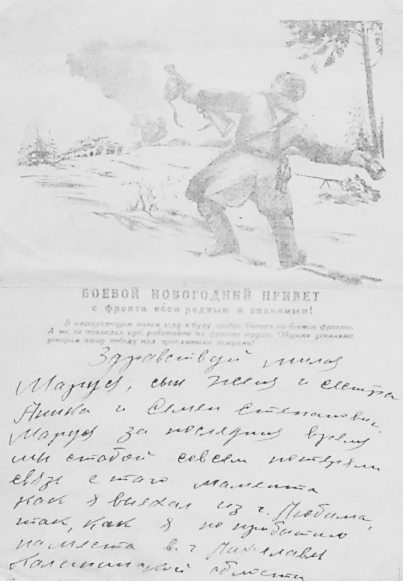 БОЕВОЙ НОВОГОДНИЙ ПРИВЕТ
с фронта всем родным и знакомым!
В наступающем новом году я буду
А ты, не покладая рук, работайте на фронте труда. Общими усилиями
ускорим нашу победу над проклятыми
Здравствуй милая
Маруся, сын Женя и сестра
Аника и Семен Степанович.
Маруся за последния время
мы стобой совсем потеряли
связь с того момента
как я выехал из г. Любама,
так, как я по прибытию
наместо в. г.
Калининской области